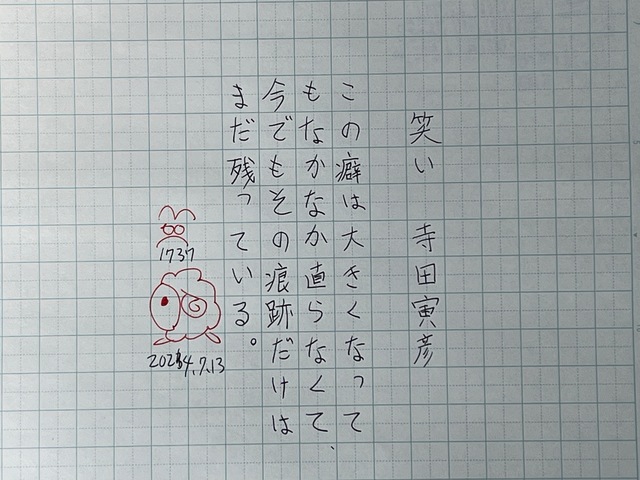 笑い 寺田寅彦
この癖は大きくなって
もなかなか直らなくて、
今でもその痕跡だけは
まだ残っている。
1737
2024.7.13